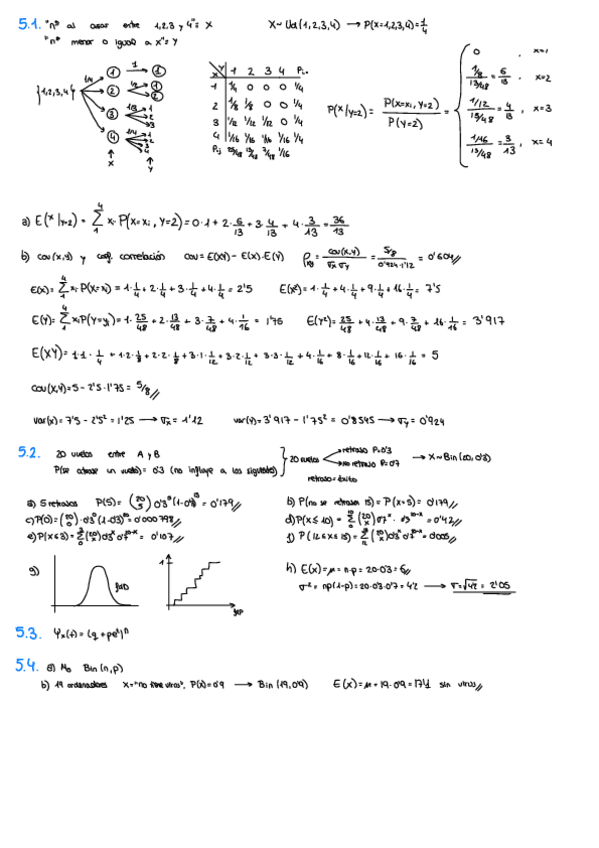 5.1. "nº al azar entre 1,2,3 y 4" = X X~Ud(1,2,3,4) → P(X=1,2,3,4)=1/4
"nº menor o igual a x" = Y
{1,2,3,4} 1/4 1 2 3 4 1 1/2 1/3 1/4 X Y
X Y 1 2 3 4 Pi.
1 1/4 0 0 0 1/4
2 1/8 1/8 0 0 1/4
3 1/12 1/12 1/12 0 1/4
4 1/16 1/16 1/16 1/16 1/4
P.j 25/48 13/48 7/48 1/16
P(X/Y=2) = P(X=xi, Y=2) / P(Y=2) =
0, x=1
1/8 / 13/48 = 6/13, x=2
1/12 / 13/48 = 4/13, x=3
1/16 / 13/48 = 3/13, x=4
a) E(X|Y=2) = Σ xi·P(X=xi, Y=2) = 0·1 + 2·6/13 + 3·4/13 + 4·3/13 = 36/13
b) cov(x,y) y coef. correlación cov = E(XY) - E(X)·E(Y) ρxy = cov(x,y) / σx σy = 5/8 / 0'924·1'12 = 0'604//
E(X) = Σ xi·P(X=xi) = 1·1/4 + 2·1/4 + 3·1/4 + 4·1/4 = 2'5 E(X²) = 1·1/4 + 4·1/4 + 9·1/4 + 16·1/4 = 7'5
E(Y) = Σ xiP(Y=yi) = 1·25/48 + 2·13/48 + 3·7/48 + 4·1/16 = 1'75 E(Y²) = 25/48 + 4·13/48 + 9·7/48 + 16·1/16 = 3'917
E(XY) = 1·1·1/4 + 1·2·1/8 + 2·2·1/8 + 3·1·1/12 + 3·2·1/12 + 3·3·1/12 + 4·1/16 + 8·1/16 + 12·1/16 + 16·1/16 = 5
cov(X,Y) = 5 - 2'5·1'75 = 5/8//
Var(x) = 7'5 - 2'5² = 1'25 → σx = 1'12 var(y) = 3'917 - 1'75² = 0'8545 → σy = 0'924
5.2. 20 vuelos entre A y B
P(se atrase un vuelo) = 0'3 (no influye a los siguientes)
20 vuelos retraso P=0'3 no retraso P=0'7 → X~Bin(20, 0'3)
retraso = éxito
a) 5 retrasos P(5) = (20 5) 0'3⁵(1-0'3)¹⁵ = 0'179// b) P(no se retrasen 15) = P(X=5) = 0'179//
c) P(0) = (20 0)·0'3⁰(1-0'3)²⁰ = 0'000798// d) P(X≤10) = Σ (20 x) 0'7ˣ·0'3²⁰⁻ˣ = 0'42//
e) P(X≤3) = Σ (20 x) 0'3ˣ 0'7²⁰⁻ˣ = 0'107// f) P(12≤X≤15) = Σ (20 x) 0'3ˣ 0'7²⁰⁻ˣ = 0'005//
g) 1 h) E(X) = μ = n·p = 20·0'3 = 6//
σ² = np(1-p) = 20·0'3·0'7 = 4'2 → σ = √4'2 = 2'05
5.3. Ψx(t) = (q + peᵗ)ⁿ
5.4. a) No Bin(n,p)
b) 19 ordenadores X="no tiene virus", P(X)=0'9 → Bin(19,0'9) E(X) = μ = 19·0'9 = 17'1 sin virus//